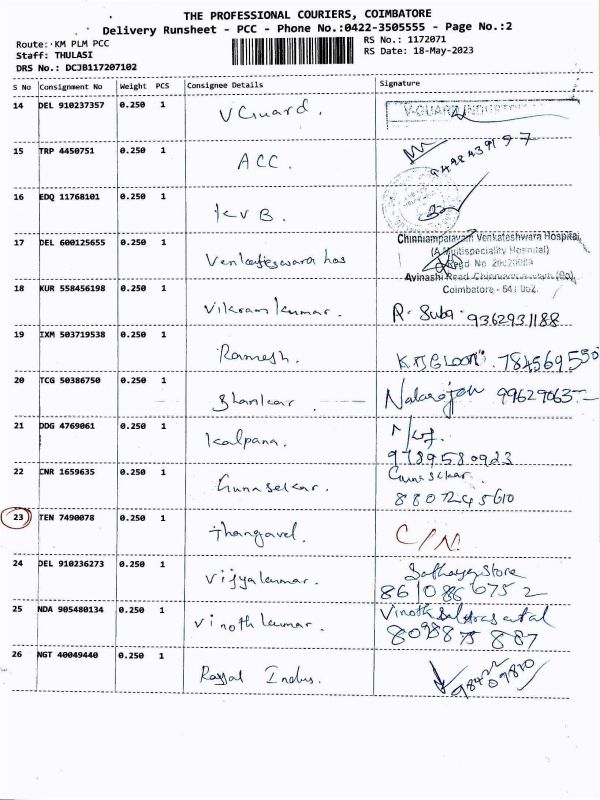 THE PROFESSIONAL COURIERS, COIMBATORE
Delivery Runsheet - PCC - Phone No.:0422-3505555 - Page No.:2
Route: KM PLM PCC
RS No.: 1172071
Staff: THULASI
RS Date: 18-May-2023
DRS No.: DCJB117207102
S No Consignment No Weight PCS Consignee Details Signature
14 DEL 910237357 0.250 1 V Guard. V-GUARD
15 TRP 4450751 0.250 1 ACC.
16 EDQ 11768101 0.250 1 KVB.
17 DEL 600125655 0.250 1
Chinniampalayam Venkateshwara Hospital,
(A Multispeciality Hospital)
Coimbatore - 641 062.
18 KUR 558456198 0.250 1 Vikram kumar. R. Suba. 9362931188
19 IXM 503719538 0.250 1 Ramesh.
20 TCG 50386750 0.250 1 Natarajan
21 DDG 4769061 0.250 1 Kalpana.
9789580923
22 CNR 1659635 0.250 1 Gunasekar. Gunasekar.
8807245610
23 TEN 7490078 0.250 1 Thangavel. C/N
24 DEL 910236273 0.250 1 Vijyakumar. Store
8610866752
25 NDA 905480134 0.250 1 Vinothkumar. Vinoth
8098875887
26 NGT 40049440 0.250 1 Indus.